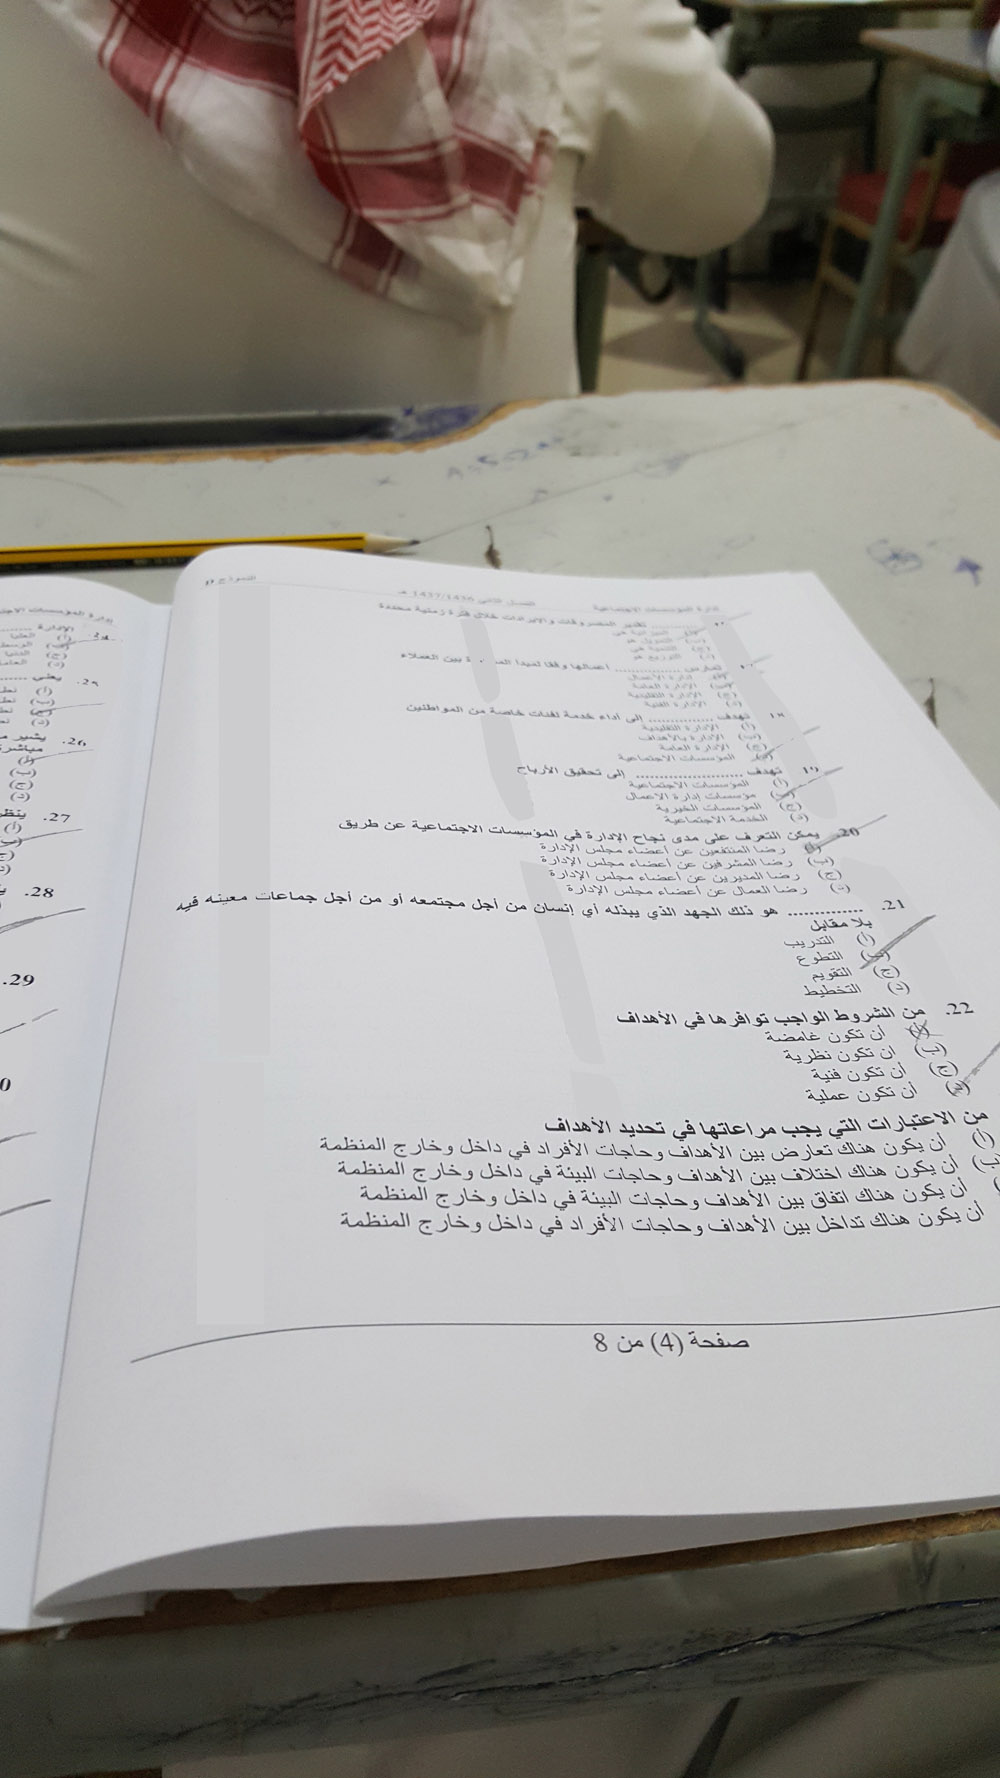 إدارة المؤسسات الاجتماعية الفصل الثاني 1437/1436 هـ النموذج
تقدير المصروفات والإيرادات خلال فترة زمنية محددة
(أ) الميزانية هي
(ب) التمويل هو
(ج) التنمية هي
(د) التوزيع هو
تمارس .............. أعمالها وفقا لمبدأ بين العملاء
(أ) إدارة الأعمال
(ب) الإدارة العامة
(ج) الإدارة التقليدية
(د) الإدارة الفنية
18. تهدف .............. إلى أداء خدمة لفئات خاصة من المواطنين
(أ) الإدارة التقليدية
(ب) الإدارة بالأهداف
(ج) الإدارة العامة
(د) المؤسسات الاجتماعية
19. تهدف ........................ إلى تحقيق الأرباح
(أ) المؤسسات الاجتماعية
(ب) مؤسسات إدارة الأعمال
(ج) المؤسسات الخيرية
(د) الخدمة الاجتماعية
20. يمكن التعرف على مدى نجاح الإدارة في المؤسسات الاجتماعية عن طريق
(أ) رضا المنتفعين عن أعضاء مجلس الإدارة
(ب) رضا المشرفين عن أعضاء مجلس الإدارة
(ج) رضا المديرين عن أعضاء مجلس الإدارة
(د) رضا العمال عن أعضاء مجلس الإدارة
21. .............. هو ذلك الجهد الذي يبذله أي إنسان من أجل مجتمعه أو من أجل جماعات معينه فيه
بلا مقابل
(أ) التدريب
(ب) التطوع
(ج) التقويم
(د) التخطيط
22. من الشروط الواجب توافرها في الأهداف
(أ) أن تكون غامضة
(ب) ان تكون نظرية
(ج) أن تكون فنية
(د) أن تكون عملية
من الاعتبارات التي يجب مراعاتها في تحديد الأهداف
(أ) أن يكون هناك تعارض بين الأهداف وحاجات الأفراد في داخل وخارج المنظمة
(ب) أن يكون هناك اختلاف بين الأهداف وحاجات البيئة في داخل وخارج المنظمة
أن يكون هناك اتفاق بين الأهداف وحاجات البيئة في داخل وخارج المنظمة
أن يكون هناك تداخل بين الأهداف وحاجات الأفراد في داخل وخارج المنظمة
صفحة (4) من 8
إدارة المؤسسات
24. الإدارة
(أ) العليا
(ب) الوسطى
(ج) الدنيا
(د) العامة
25. يعني
(أ)
(ب)
(ج)
(د)
26. يشير
مباشرة
(أ)
(ب)
(ج)
(د)
27. ينظر
(أ)
(ب)
(ج)
(د)
28.
29.
0